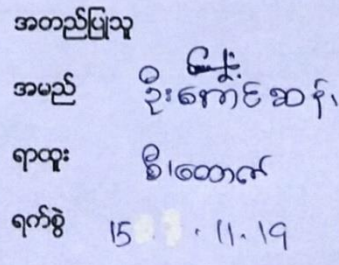 အတည်ပြုသူ
အမည် ဦးကောင်းဆန်း
ရာထူး စီ၊ထောက်
ရက်စွဲ 15 . 11 . 19